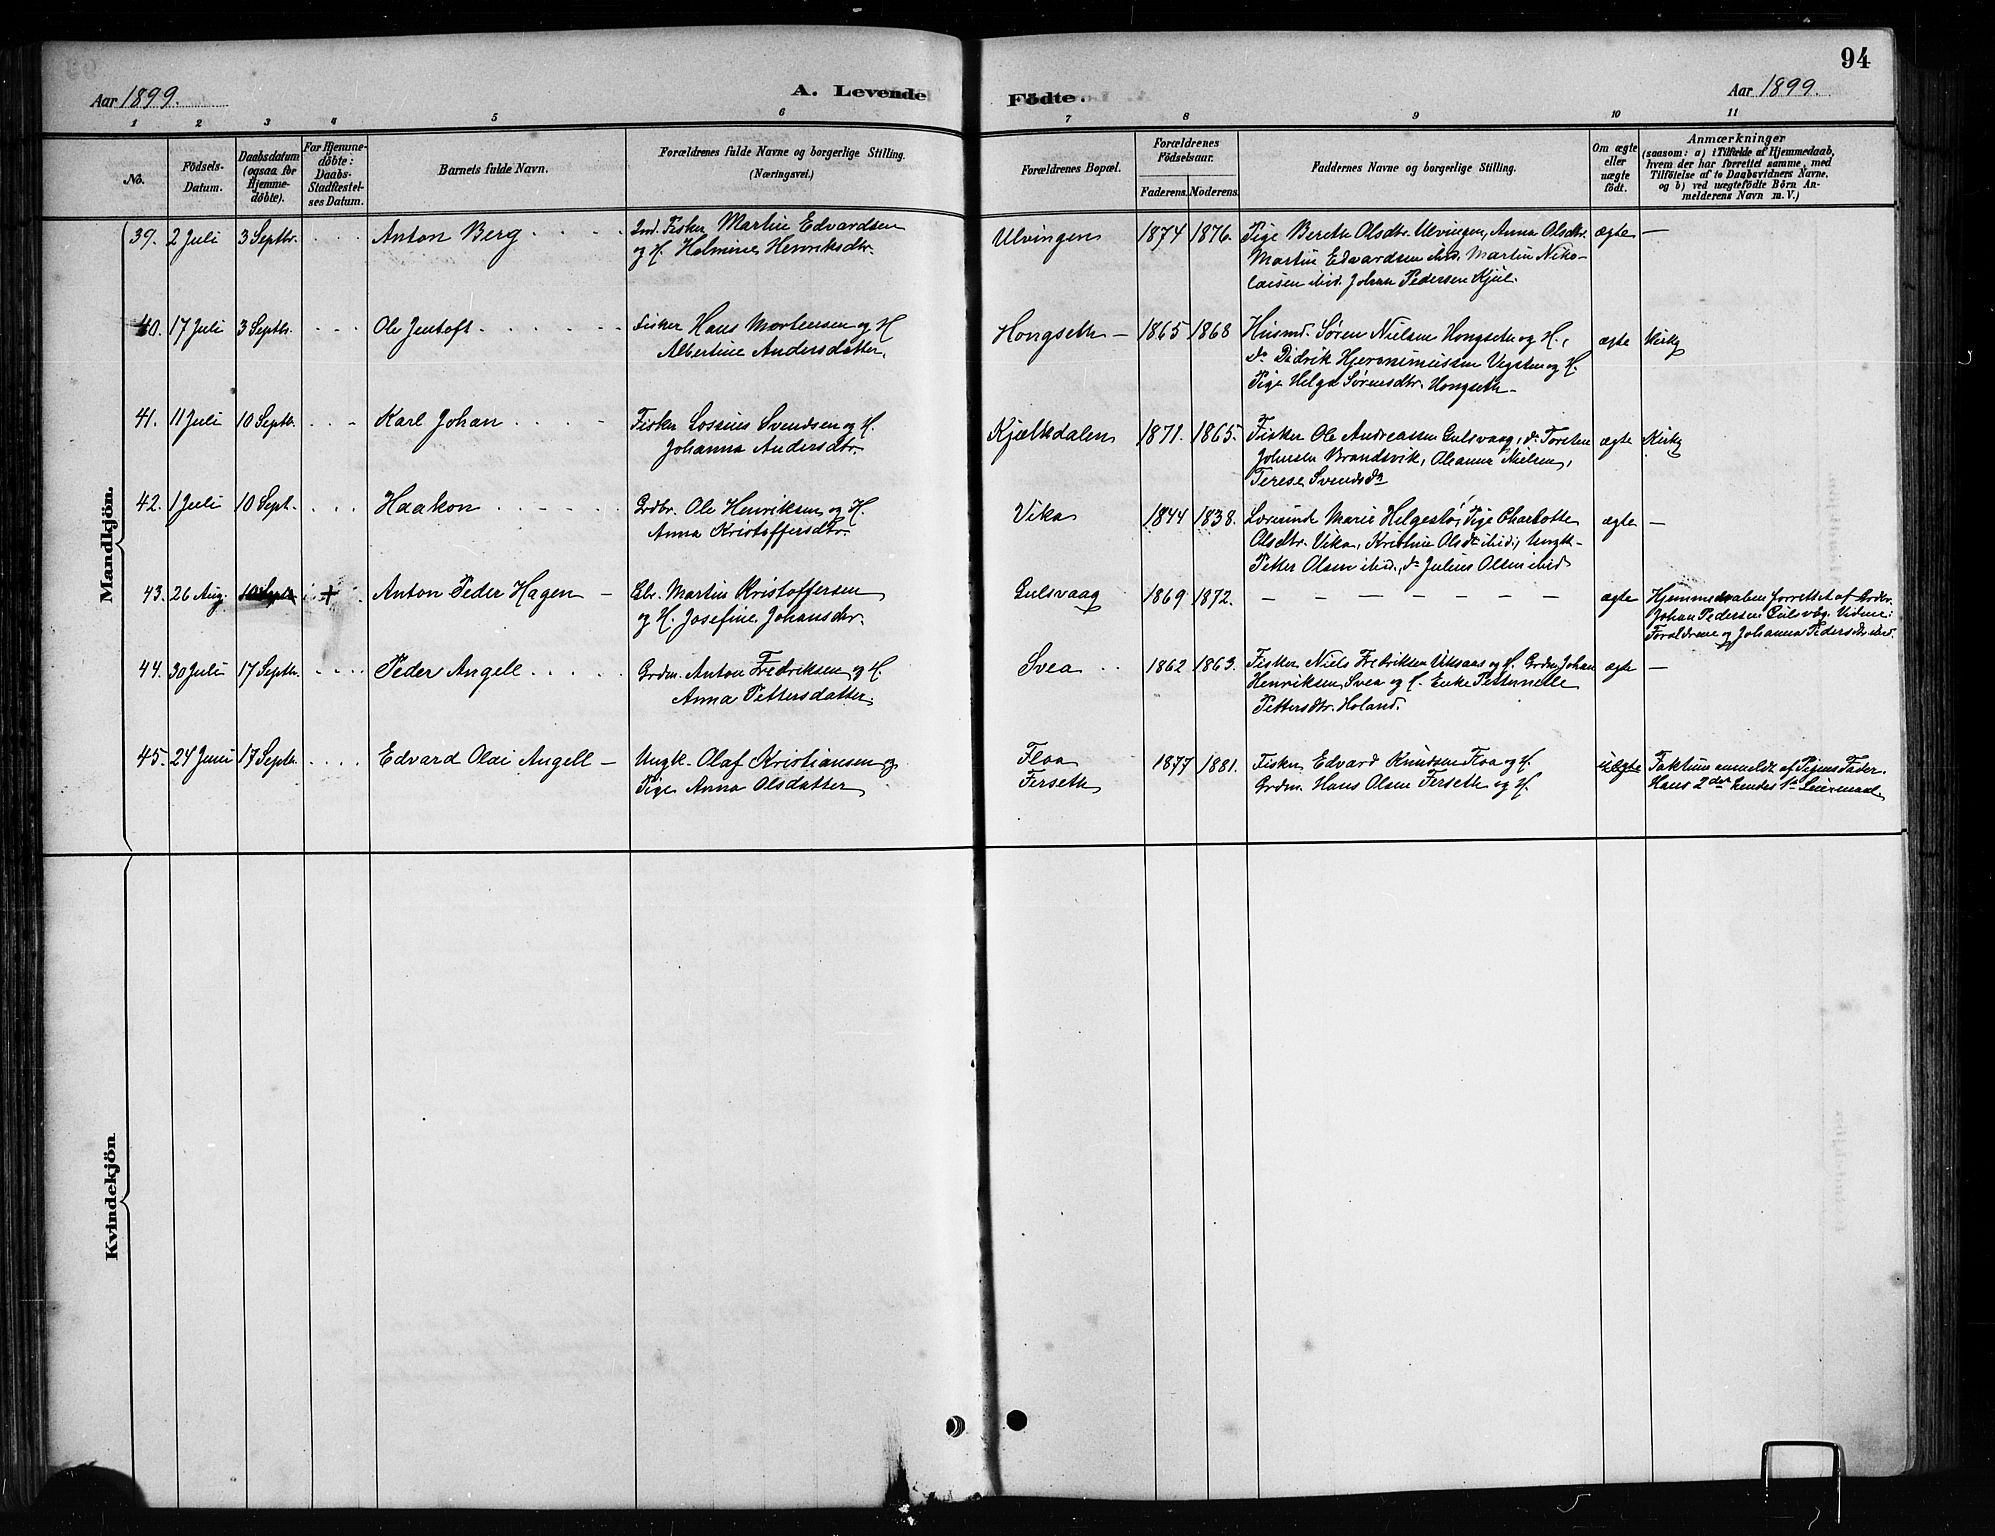 94
Aar 1899.
A. Levende
Födte.
Aar 1899.
1 2 3 4 5 6 7 8 9 10 11
No.
Födsels-Datum.
Daabsdatum (ogsaa for Hjemme-döbte).
For Hjemme-döbte: Daabs-Stadfæstel-ses Datum.
Barnets fulde Navn.
Forældrenes fulde Navne og borgerlige Stilling.
(Næringsvei.)
Forældrenes Bopæl.
Forældrenes Födselsaar.
Faderens. Moderens.
Faddernes Navne og borgerlige Stilling.
Om ægte eller uægte födt.
Anmærkninger
(saasom: a) i Tilfælde af Hjemmedaab,
hvem der har forrettet samme, med
Tilföielse af to Daabsvidners Navne,
og b) ved uægtefödte Börn An-
melderens Navn m. V.)
Mandkjön.
39. 2 Juli 3 Septbr. Anton Berg Ind. Fisker Martin Edvardsen
og H. Halmine Henriksdtr.
Ulvingen 1874 1876. Pige Berethe Olsdtr. Ulvingen, Anna Olsdtr. ægte —
Martin Edvardsen ibid. Martin Niko-
laisen ibid. Johan Pedersen Kjul.
40. 17 Juli 3 Septbr. Ole Jentoft Fisker Hans Mortensen og H
Albertine Andersdatter.
Hongseth 1865 1868 Husmd. Søren Nielsen Hongseth og H., ægte Kirke
do Didrik Hjeronimussen Vegsten og H.
Pige Helga Sørensdtr. Hongseth
41. 11 Juli 10 Septbr. Karl Johan Fisker Lossius Svendsen og H.
Johanna Andersdtr.
Kjælkdalen 1871. 1865. Fisker Ole Andreassen Gulsvaag, do Torsten ægte Kirke
Johnsen Brandsvik, Oleanna Nielsen,
Terese Svendsdr
42. 1 Juli 10 Sept. Haakon Grdbr. Ole Henriksen og H
Anna Kristoffersdtr.
Vika 1844 1838. Lærerinde Marie Helgestø, Pige Charlotte ægte —
Olsdtr. Vika, Kristine Olsdtr ibid., Ungk.
Petter Olsen ibid., do Julius Olsen ibid
43. 26 Aug. 10 Septbr + Anton Peder Hagen Gbr. Martin Kristoffersen
og H. Josefine Johansdtr.
Gulsvaag 1869 1872. — ægte Hjemmedaaben forrettet af Grdbr.
Johan Pedersen Gulsvåg. Vidne:
Forældrene og Johanna Pedersdtr ibid.
44. 30 Juli 17 Septbr. Peder Angell Grdm. Anton Fredriksen og H.
Anna Pettersdatter
Svea 1862 1863. Fisker Niels Fredriksen Uksaas og H. Grdm Johan ægte —
Henriksen Svea og H. Enke Petternelle
Pettersdtr. Holand.
45. 24 Juni 17 Septb. Edvard Olai Angell Ungk. Olaf Kristiansen og
Pige Anna Olsdatter
Floa
Ferseth
1877 1881. Fisker Edvard Knudsen Floa og H.
Grdm. Hans Olsen Ferseth og H.
uægte Faktum anmeldt af Pigens Fader.
Hans 2det hendes 1ste Leiermaal.
Kvindekjön